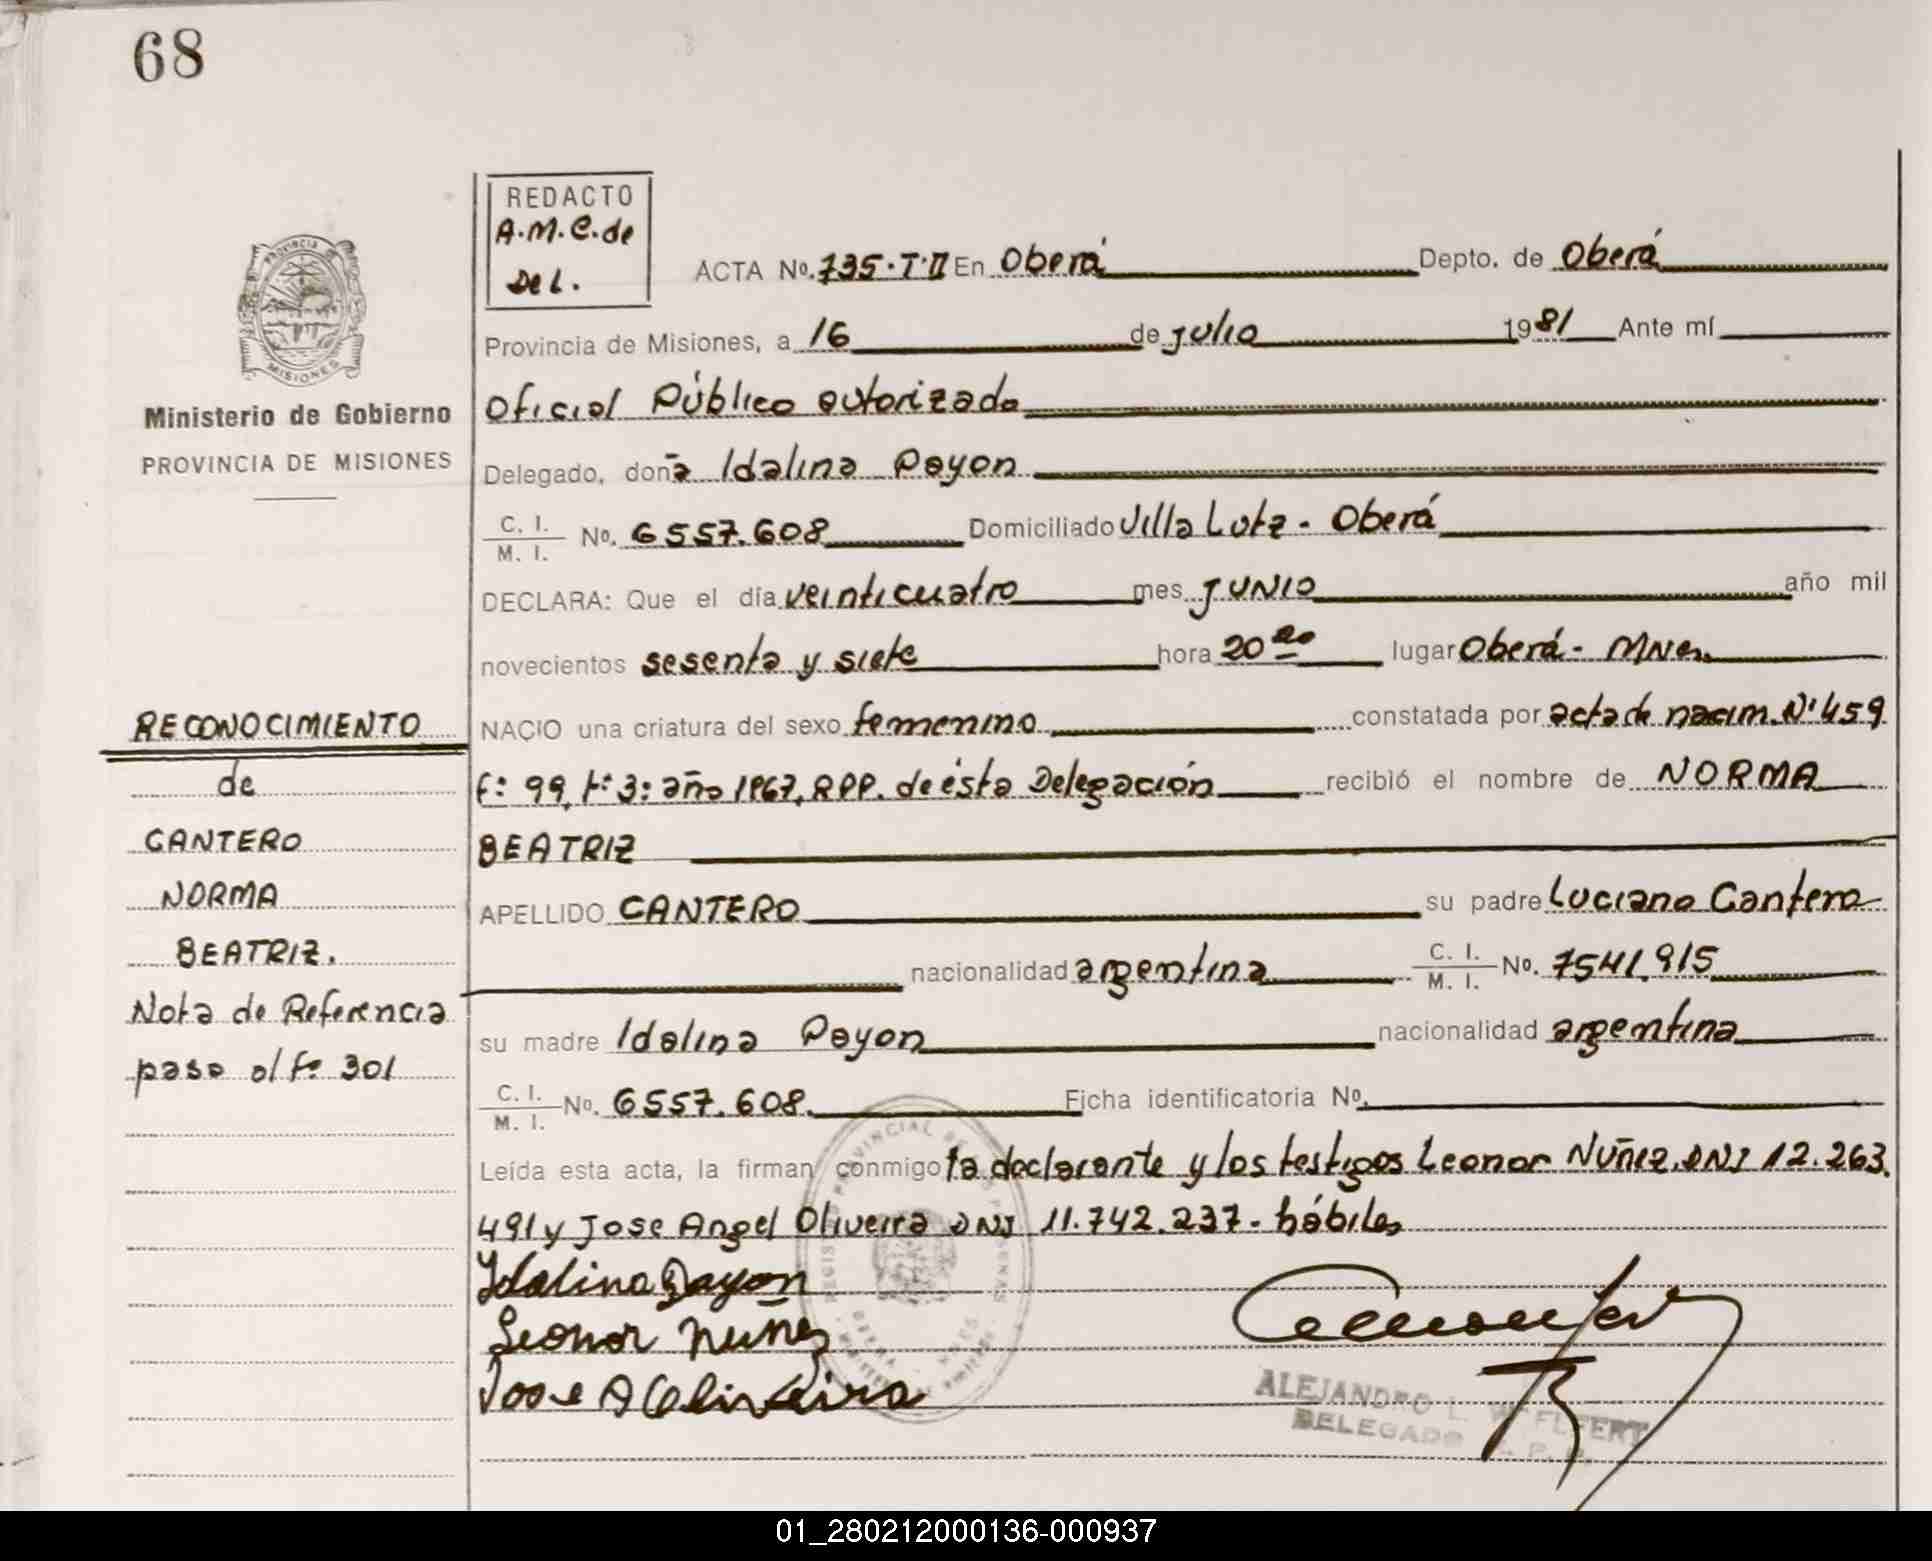 68
REDACTO
A.M.C. de
Del.
ACTA No. 735.T.II En Oberá Depto. de Oberá
Provincia de Misiones, a 16 de julio 1981 Ante mí
Oficial Público autorizado
Delegado, doña Idalina Payon
C. I.
M. I. No. 6557.608 Domiciliado Villa Lutz - Oberá
DECLARA: Que el día veinticuatro mes JUNIO año mil
novecientos sesenta y siete hora 20 lugar Oberá - MNes.
NACIO una criatura del sexo femenino constatada por acta de nacim. Nº 459
fº 99, tº 3º año 1967, RPP. de ésta Delegación recibió el nombre de NORMA
BEATRIZ
APELLIDO CANTERO su padre Luciano Cantero
nacionalidad argentina C. I. M. I. No. 7541.915
su madre Idalina Payon nacionalidad argentina
C. I. M. I. No. 6557.608. Ficha identificatoria No.
Leída esta acta, la firman conmigo la declarante y los testigos Leonor Nuñez, DNI 12.263.
491 y Jose Angel Oliveira DNI 11.742.237 - hábiles
Idalina Payon
Leonor Nuñez
Jose A Oliveira
ALEJANDRO L.
DELEGADO
PROVINCIA
MISIONES
Ministerio de Gobierno
PROVINCIA DE MISIONES
RECONOCIMIENTO
de
CANTERO
NORMA
BEATRIZ.
Nota de Referencia
paso al fº 301
01_280212000136-000937